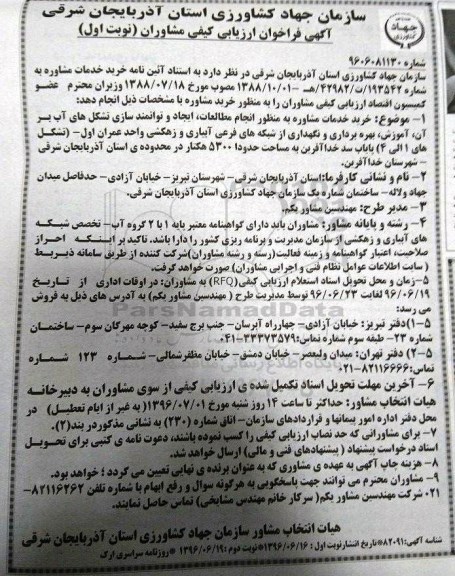 سازمان جهاد کشاورزی استان آذربایجان شرقی
آگهی فراخوان ارزیابی کیفی مشاوران (نوبت اول)
جهاد کشاورزی
شماره ۹۶۰۶۰۸۱۱۳۰
سازمان جهاد کشاورزی استان آذربایجان شرقی در نظر دارد به استناد آئین نامه خرید خدمات مشاوره به
شماره ۱۹۳۵۴۲/ت/۴۲۹۸۲هـ –۱۳۸۸/۱۰/۰۱ مصوب مورخ ۱۳۸۸/۰۷/۱۸ وزیران محترم عضو
کمیسیون اقتصاد ارزیابی کیفی مشاوران را به منظور خرید مشاوره با مشخصات ذیل انجام دهد:
۱– موضوع: خرید خدمات مشاوره به منظور انجام مطالعات، ایجاد و توانمند سازی تشکل های آب بر
آن، آموزش، بهره برداری و نگهداری از شبکه های فرعی آبیاری و زهکشی واحد عمران اول– (تشکل
های ۱ الی ۴) پایاب سد خدآفرین به مساحت حدودا ۵۳۰۰ هکتار در محدوده ی استان آذربایجان شرقی
– شهرستان خدآفرین.
۲– نام و نشانی کارفرما: استان آذربایجان شرقی– شهرستان تبریز– خیابان آزادی– حدفاصل میدان
جهاد ولاله– ساختمان شماره یک سازمان جهاد کشاورزی استان آذربایجان شرقی.
۳– مدیر طرح: مهندسین مشاور یکم.
۴– رشته و پایانه مشاور: مشاوران باید دارای گواهینامه معتبر پایه ۱ یا ۲ گروه آب– تخصص شبکه
های آبیاری و زهکشی از سازمان مدیریت و برنامه ریزی کشور را دارا باشد. تاکید بر اینکه احراز
صلاحیت، اعتبار گواهینامه و زمینه فعالیت(رسته و رشته مشاوران)شرکت کننده از طریق سامانه ذیربط
( سایت اطلاعات عوامل نظام فنی و اجرایی مشاوران) صورت خواهد گرفت.
۵–زمان و محل تحویل اسناد استعلام ارزیابی کیفی(RFQ) به مشاوران: در اوقات اداری از تاریخ
۹۶/۰۶/۱۹ لغایت ۹۶/۰۶/۲۳ توسط مدیریت طرح ( مهندسین مشاور یکم) به آدرس های ذیل به فروش
می رسد:
ParsNamadData
۱–۵)دفتر تبریز: خیابان آزادی– چهارراه آبرسان– جنب برج سفید– کوچه مهرگان سوم– ساختمان
شماره ۲۳– طبقه سوم شماره تماس:۳۳۳۷۳۵۷۹–۰۴۱
۲–۵) دفتر تهران: میدان ولیعصر– خیابان دمشق– خیابان مظفرشمالی– شماره ۱۲۳ شماره
تماس:۸۲۱۱۶۶۶۶–۰۲۱
۶– آخرین مهلت تحویل اسناد تکمیل شده ی ارزیابی کیفی از سوی مشاوران به دبیرخانه
هیات انتخاب مشاور: حداکثر تا ساعت ۱۴ روز شنبه مورخ ۱۳۹۶/۰۷/۰۱( به غیر از ایام تعطیل) در
محل دفتر اداره امور پیمانها و قراردادهای سازمان– اتاق شماره (۲۳۰) به نشانی مذکور در بند(۲).
۷– برای مشاورانی که حد نصاب ارزیابی کیفی را کسب نموده باشند، دعوت نامه ی کتبی برای تحویل
اسناد درخواست پیشنهاد ( پیشنهادهای فنی و مالی) ارسال خواهد شد.
۸– هزینه چاپ آگهی به عهده ی مشاوری که به عنوان برنده ی نهایی تعیین می گردد ؛ خواهد بود.
۹– مشاوران محترم می توانند جهت پاسخگویی به هرگونه سوال و رفع ابهام با شماره تلفن ۸۲۱۱۶۲۶۲–
۰۲۱ شرکت مهندسین مشاور یکم( سرکار خانم مهندس مشایخی) تماس حاصل نمایند.
هیات انتخاب مشاور سازمان جهاد کشاورزی استان آذربایجان شرقی
شناسه آگهی:۸۲۰۹۱*تاریخ انتشارنوبت اول : ۱۳۹۶/۰۶/۱۶ *نوبت دوم :۱۳۹۶/۰۶/۱۹ *روزنامه سراسری ارک